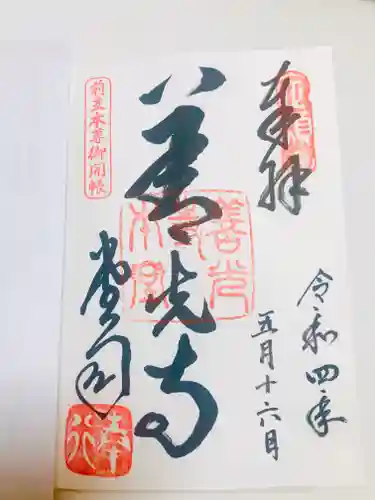 奉拝
令和四年
五月十六日
善光寺
堂司
前立本尊御開帳
奉行